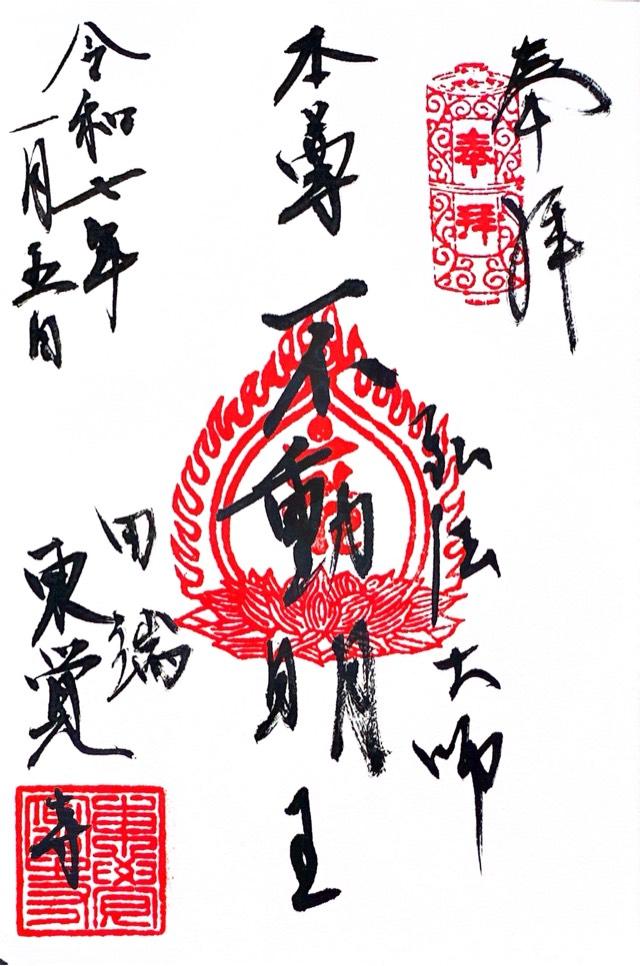 奉拝
奉拝
弘法大師
本尊 不動明王
令和七年
一月五日
田端
東覚寺
東覺寺